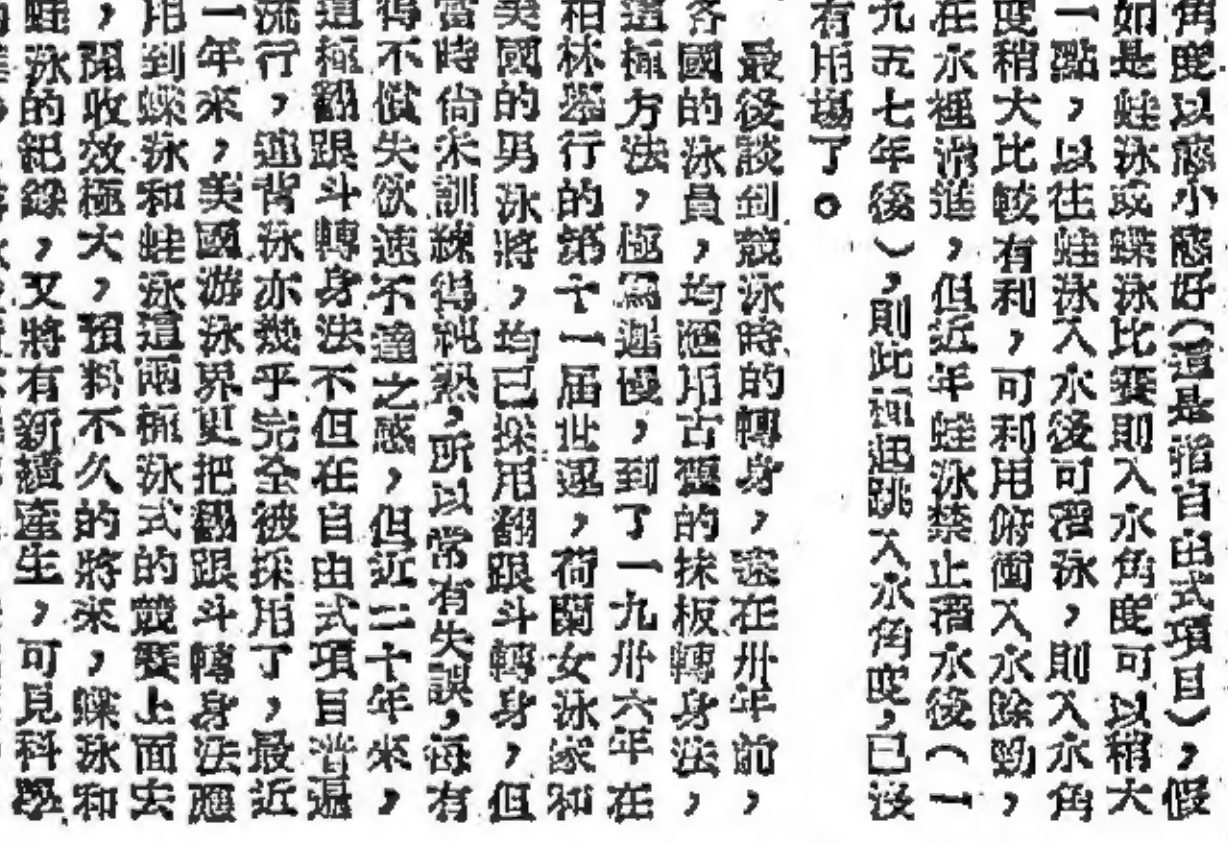 角度以應小應好(這是指自由式項目),假
如是蛙泳或蝶泳比賽則入水角度可以稍大
一點,以往蛙泳入水後可潛泳,則入水角
度稍大比較有利,可利用俯衝入水餘勁,
在水裡滑進,但近年蛙泳禁止潛水後(一
九五七年後),則此種起跳入水角度,已沒
有用場了。
最後談到競泳時的轉身,遠在卅年前,
各國的泳員,均應用古舊的抹板轉身法,
這種方法,極為遲慢,到了一九卅六年在
柏林舉行的第十一屆世運,荷蘭女泳家和
美國的男泳將,均已採用翻跟斗轉身,但
當時尚未訓練得純熟,所以常有失誤,每有
得不償失欲速不達之感,但近二十年來,
這種翻跟斗轉身法不但在自由式項目普遍
流行,連背泳亦幾乎完全被採用了,最近
一年來,美國游泳界更把翻跟斗轉身法應
用到蝶泳和蛙泳這兩種泳式的競賽上面去
,開收效極大,預料不久的將來,蝶泳和
蛙泳的紀錄,又將有新績產生,可見科學